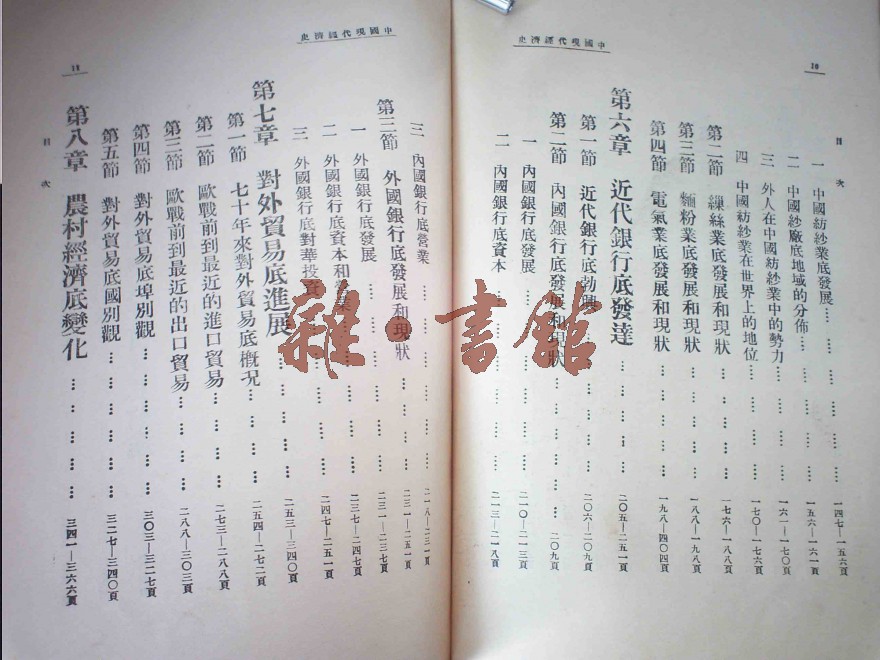 中國現代經濟史
10
目次
一 中國紡紗業底發展…… 一四七—一五六頁
二 中國紗廠底地域的分佈…… 一五六—一六一頁
三 外人在中國紡紗業中的勢力…… 一六一—一七〇頁
四 中國紡紗業在世界上的地位…… 一七〇—一七六頁
第二節 繅絲業底發展和現狀…… 一七六—一八八頁
第三節 麵粉業底發展和現狀…… 一八八—一九八頁
第四節 電氣業底發展和現狀…… 一九八—二〇四頁
第六章 近代銀行底發達…… 二〇五—二五一頁
第一節 近代銀行底勃興…… 二〇六—二〇九頁
第二節 內國銀行底發展和現狀…… 二〇九頁
一 內國銀行底發展…… 二一〇—二一三頁
二 內國銀行底資本…… 二一三—二一八頁
中國現代經濟史
11
目次
三 內國銀行底營業…… 二一八—二三一頁
第三節 外國銀行底發展和現狀…… 二三一—二五一頁
一 外國銀行底發展…… 二三一—二三七頁
二 外國銀行底資本和營業…… 二三七—二四七頁
三 外國銀行底對華投資…… 二四七—二五一頁
第七章 對外貿易底進展…… 二五三—三四〇頁
第一節 七十年來對外貿易底概况…… 二五四—二七二頁
第二節 歐戰前到最近的進口貿易…… 二七三—二八八頁
第三節 歐戰前到最近的出口貿易…… 二八八—三〇三頁
第四節 對外貿易底埠別觀…… 三〇三—三二七頁
第五節 對外貿易底國別觀…… 三二七—三四〇頁
第八章 農村經濟底變化…… 三四一—三六六頁
雜·書館